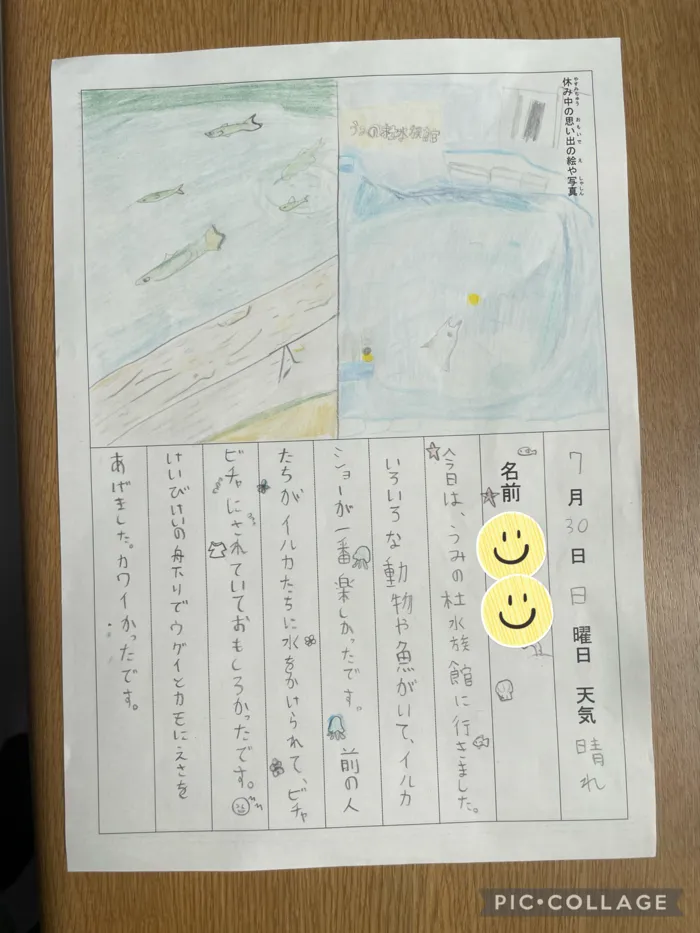 休み中の思い出の絵や写真
やすみちゅう おもいで え しゃしん
うみの杜水族館
7月30日 日曜日 天気 晴れ
名前
今日は、うみの杜水族館に行きました。
いろいろな動物や魚がいて、イルカ
ショーが一番楽しかったです。前の人
たちがイルカたちに水をかけられて、ビチャ
ビチャにされていておもしろかったです。
げいびけいの舟下りでウグイとカモにえさを
あげました。カワイかったです。
PIC•COLLAGE